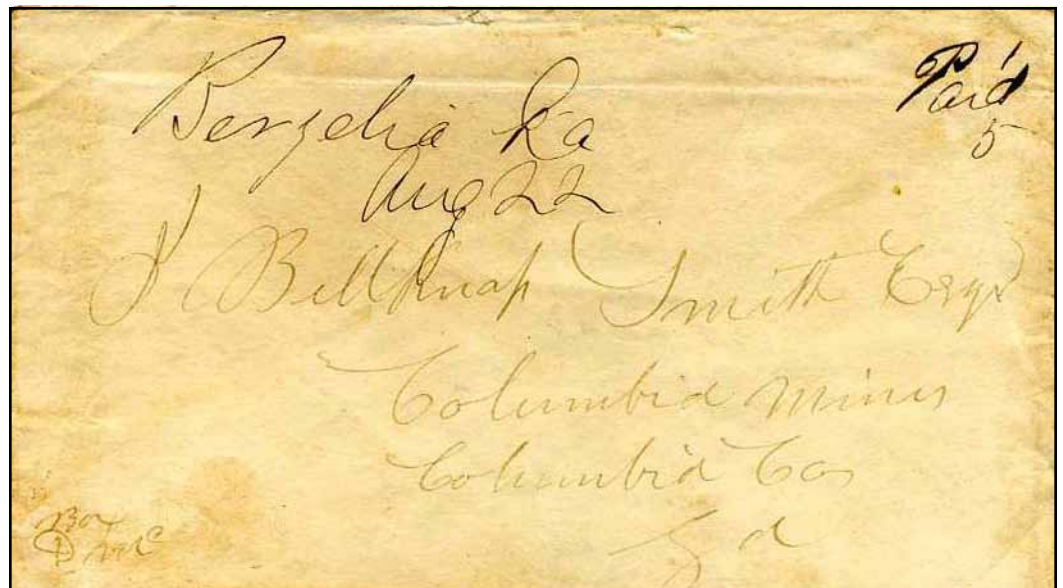 Berzelia Ga
Aug 22
Paid
5
J Bellknap Smith Esqr
Columbia Mines
Columbia Co
Ga